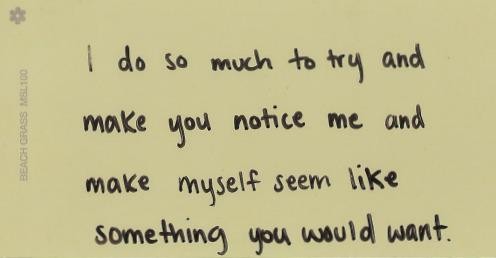 I do so much to try and
make you notice me and
make myself seem like
something you would want.
BEACH GRASS MSL100